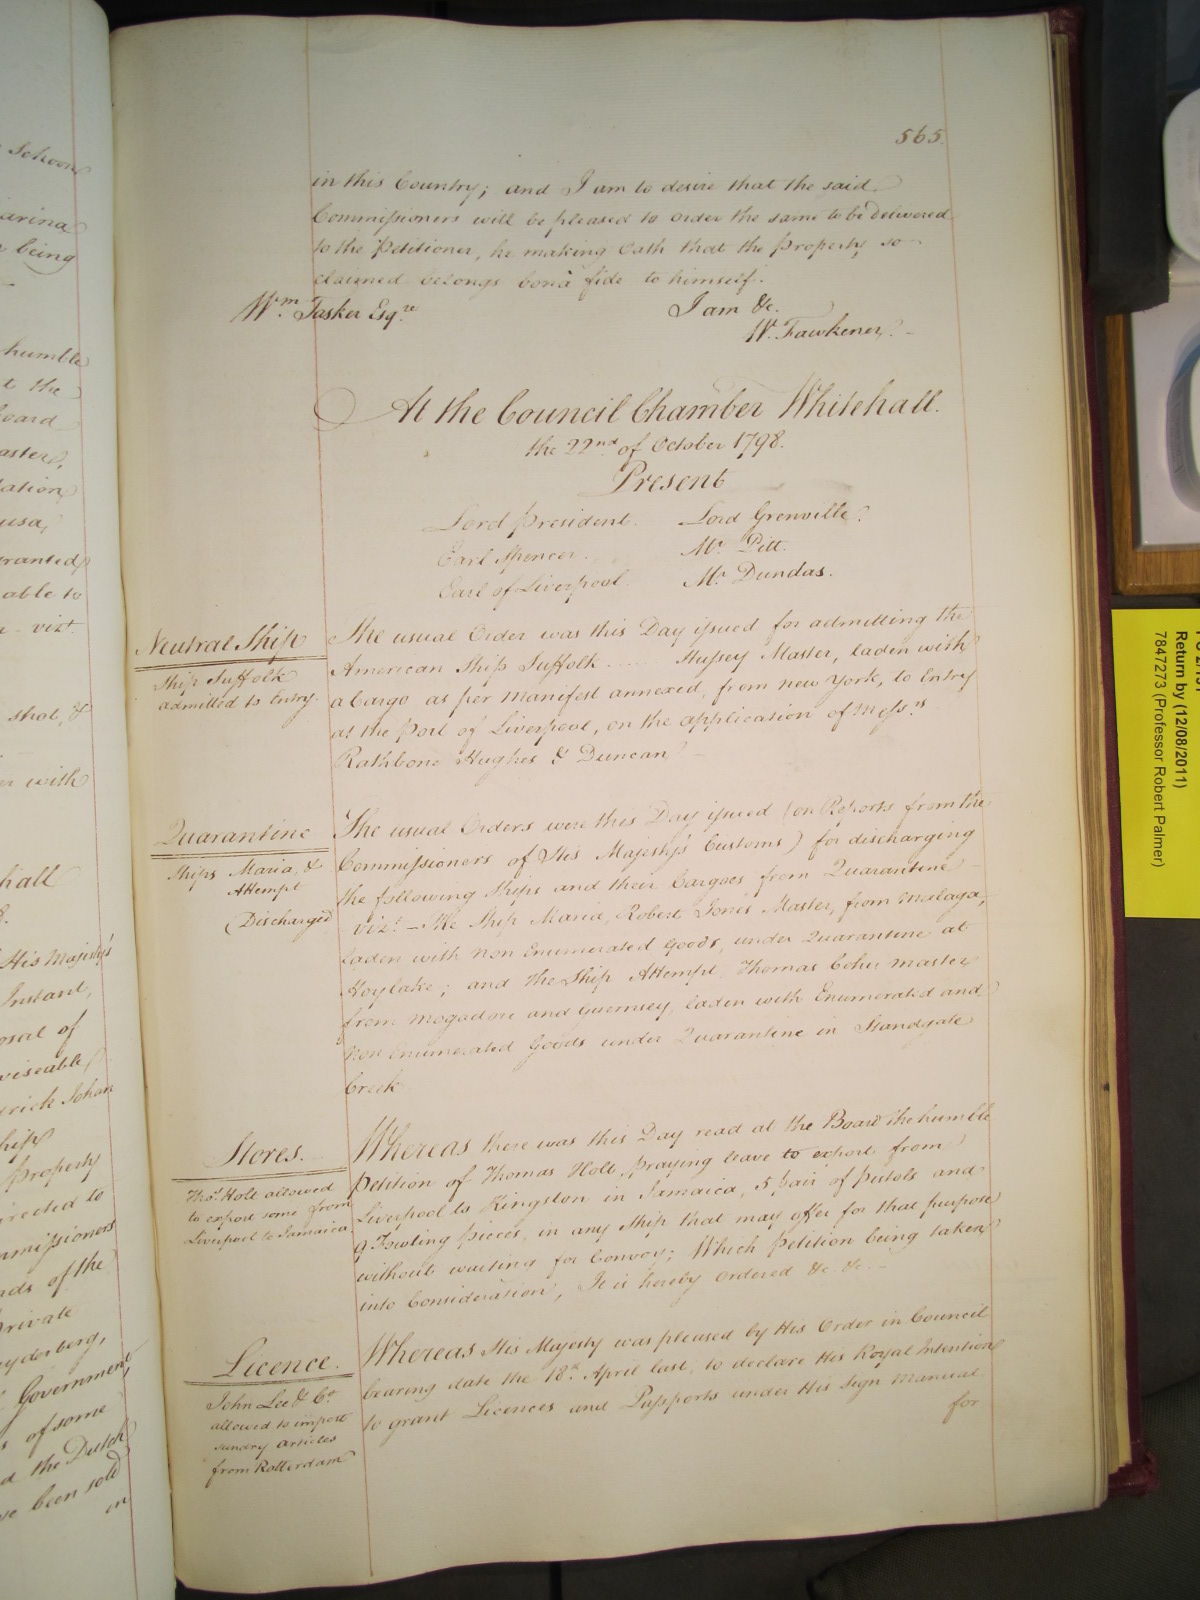 565.
in this Country; and I am to desire that the said
Commissioners will be pleased to order the same to be delivered
to the Petitioner, he making Oath that the Property so
claimed belongs bonâ fide to himself.
Wm. Tasker Esqre
I am &c.
W. Fawkener.
At the Council Chamber Whitehall.
the 22nd of October 1798.
Present
Lord President. Lord Grenville.
Earl Spencer. Mr Pitt.
Earl of Liverpool. Mr Dundas.
Neutral Ship
Ship Suffolk
admitted to Entry.
The usual Order was this Day issued for admitting the
American Ship Suffolk ..... Hussey Master, laden with
a Cargo as per Manifest annexed, from New York, to Entry
at the Port of Liverpool, on the application of Messrs
Rathbone Hughes & Duncan
Quarantine
Ships Maria, &
Attempt
Discharged
The usual Orders were this Day issued (on Reports from the
Commissioners of His Majesty's Customs) for discharging
the following Ships and their Cargoes from Quarantine
vizt. - The Ship Maria, Robert Jones Master, from Malaga,
laden with Non Enumerated Goods, under Quarantine at
Hoylake; and the Ship Attempt, Thomas Master
from Mogadore and Guernsey, laden with Enumerated and
Non Enumerated Goods under Quarantine in Standgate
Creek
Stores.
Thos. Holt allowed
to export some from
Liverpool to Jamaica.
Whereas there was this Day read at the Board the humble
Petition of Thomas Holt, praying leave to export from
Liverpool to Kingston in Jamaica, 5 pair of Pistols and
9 Fowling pieces, in any Ship that may offer for that purpose
without waiting for Convoy; Which Petition being taken
into Consideration, It is hereby ordered &c. &c.
Licence.
John Lee & Co
allowed to import
sundry articles
from Rotterdam
Whereas His Majesty was pleased by His Order in Council
bearing date the 18th April last, to declare His Royal Intention
to grant Licences and Passports under His Sign Manual
for
Schoon
being
humble
t the
able to
vizt.
that, &
with
hall
His Majesty's
Instant,
osal of
Johan
Property
directed to
of the
Private
Government
of some
the Dutch
been sold
on
Return by (12/08/2011)
7847273 (Professor Robert Palmer)